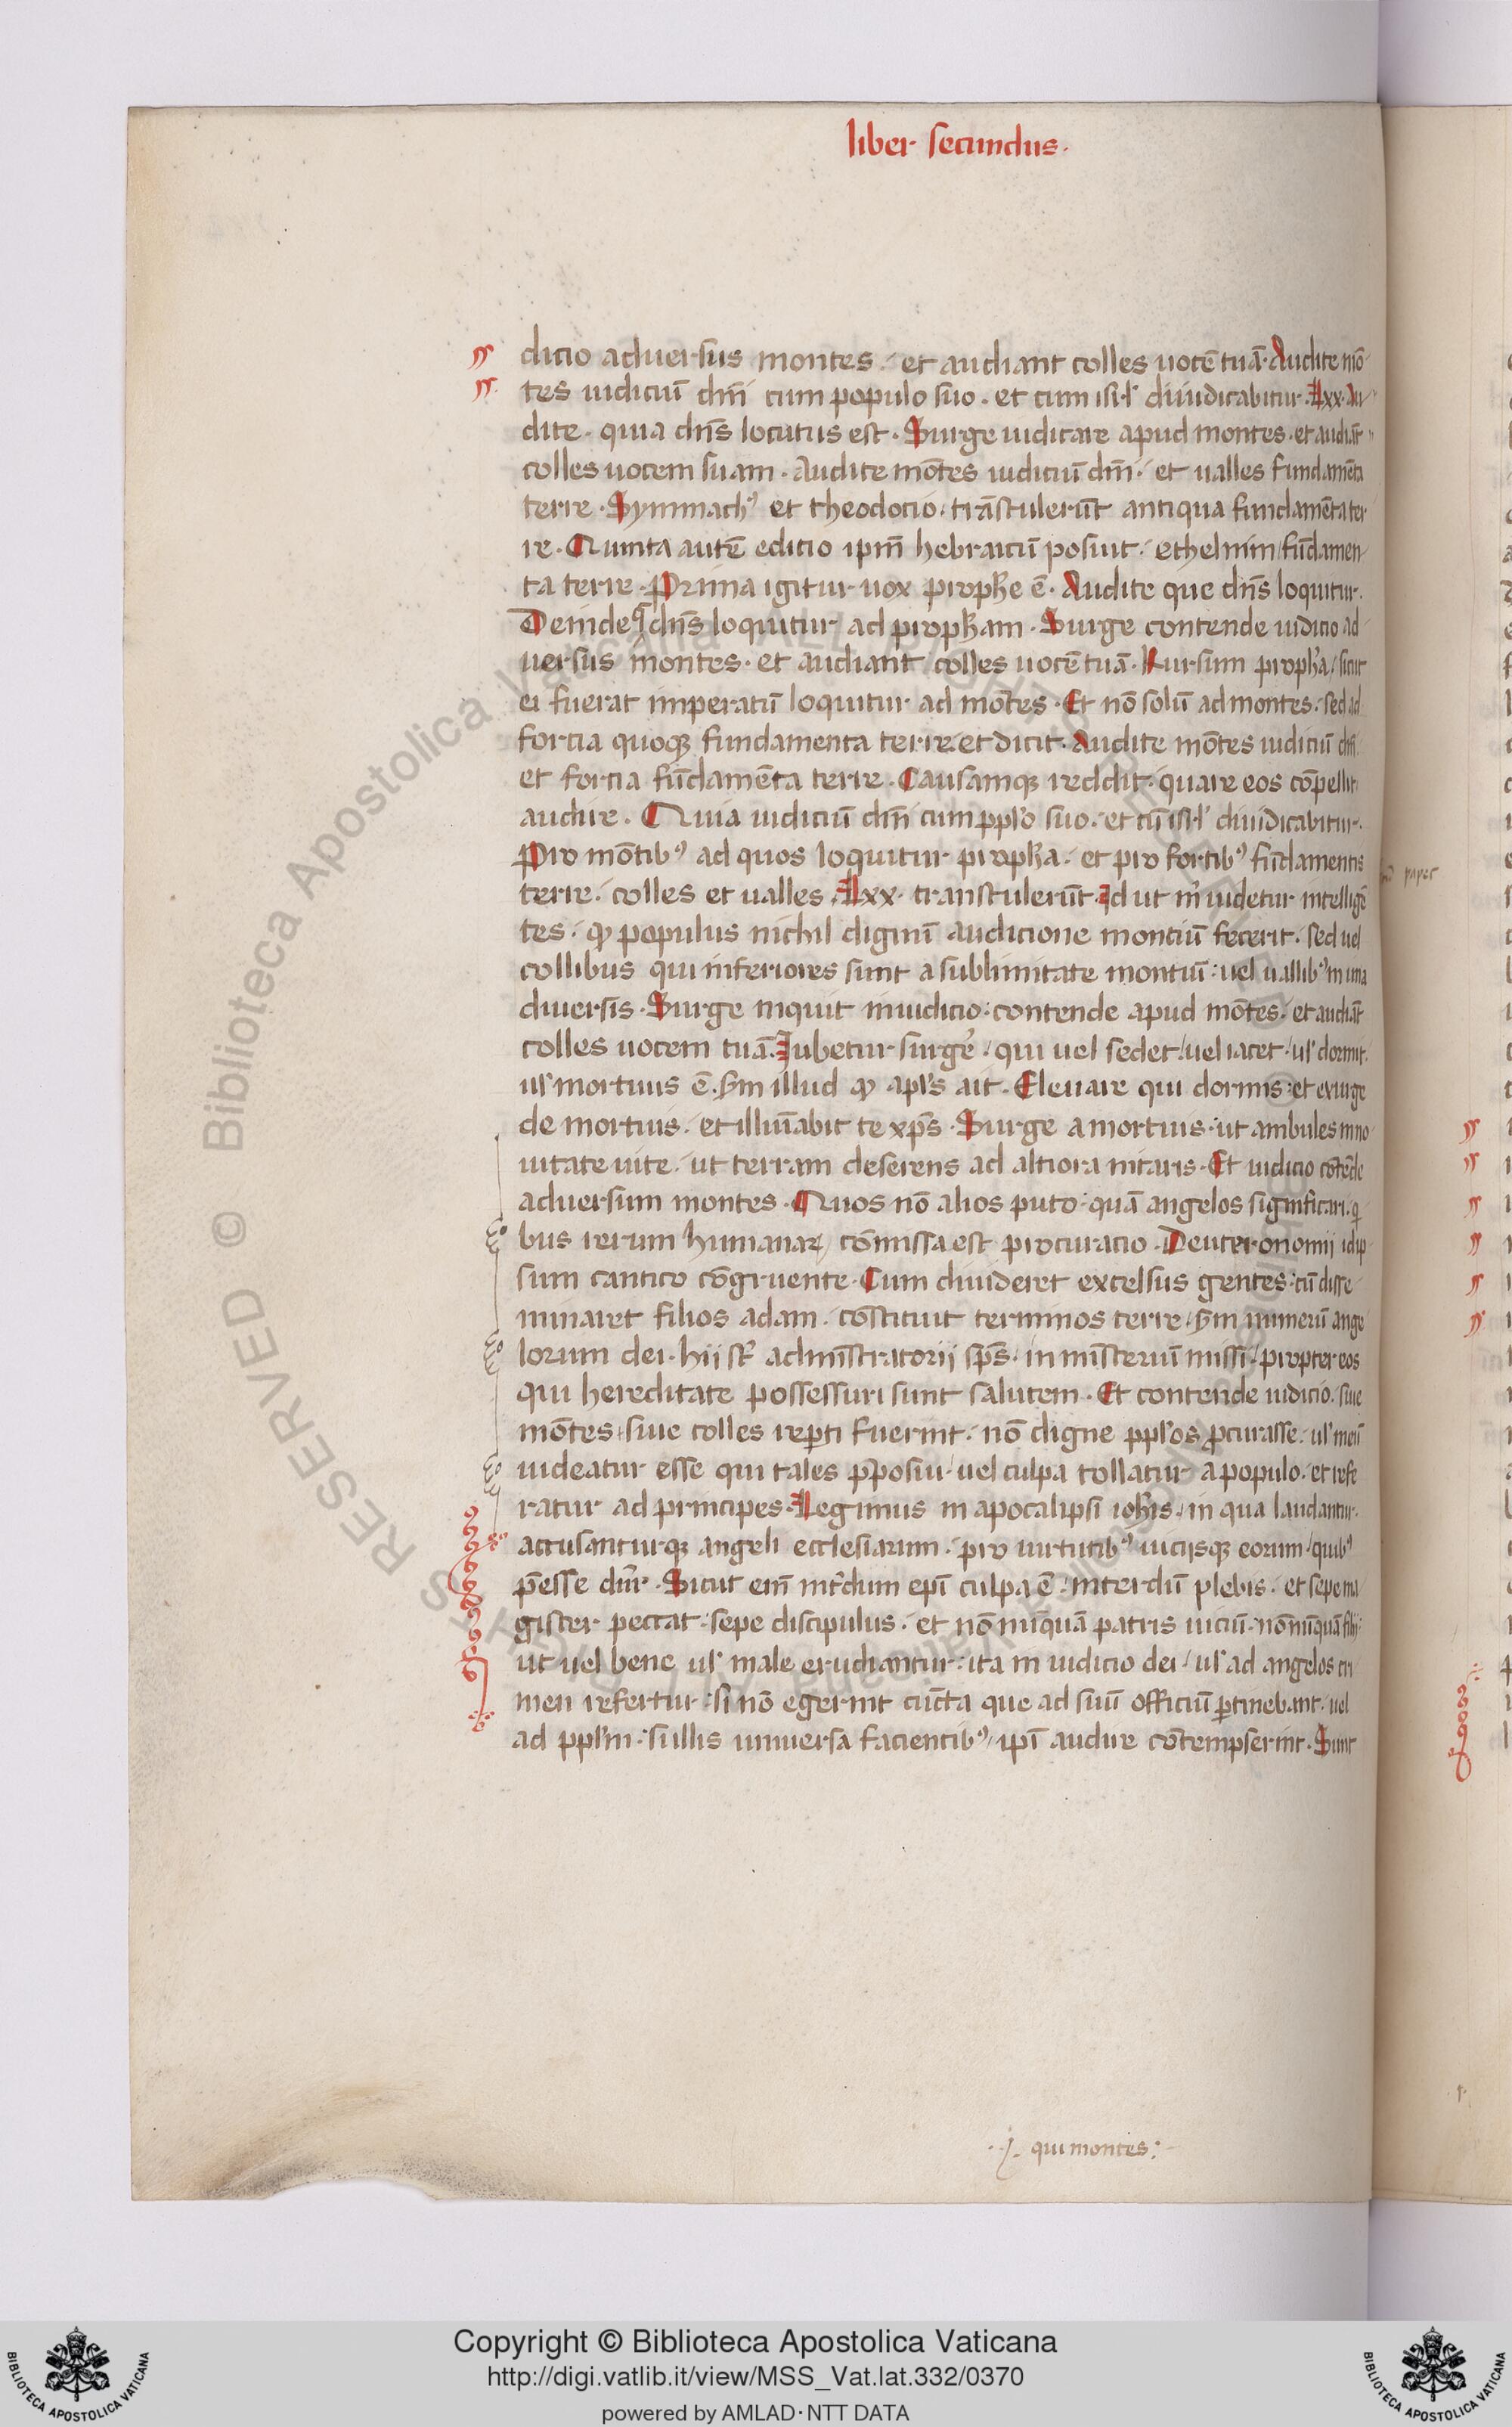 liber secundus.
dicio aduersus montes. et audiant colles uocē tuā. Audite mō
tes iudiciū dn̄i cum populo suo. et cum isrl' diiudicabitur. Lxx. Au
dite. quia dn̄s locutus est. Surge iudicare apud montes. et audiāt
colles uocem suam. Audite mōtes iudiciū dn̄i. et ualles fundamēta
terre. Symmachꝰ et theodocio. trāstulerūt antiqua fundamēta ter
re. Quinta autē editio ipm̄ hebraicū posuit. ethelnim fūdamen
ta terre. Prima igitur uox prophe ē. Audite que dn̄s loquitur.
Deinde dn̄s loquitur ad propham. Surge contende iudicio ad
uersus montes. et audiant colles uocē tuā. Rursum propha sicut
ei fuerat imperatū loquitur ad mōtes. Et nō solū ad montes. sed ad
forcia quoqꝫ fundamenta terre. et dicit. Audite mōtes iudiciū dn̄i.
et forcia fūdamēta terre. Causamqꝫ reddit. quare eos cōpellit
audire. Quia iudiciū dn̄i cum ppl'o suo. et cū isrl' diiudicabitur.
Pro mōtibꝰ ad quos loquitur propha. et pro fortibꝰ fūdamentis
terre. colles et ualles. Lxx. transtulerūt. Id ut m̓ uidetur intelligē
tes. qꝫ populus nichil dignū audicione monciū fecerit. sed uel
collibus qui inferiores sunt a sublimitate montiū. uel uallibꝰ in ima
diuersis. Surge inquit in iudicio. contende apud mōtes. et audiāt
colles uocem tuā. Jubetur surge̓. qui uel sedet. uel iacet. ul' dormit.
ul' mortuus ē. s̄m illud qꝫ apl's ait. Eleuare qui dormis. et exurge
de mortuis. et illūiabit te xp̄s. Surge a mortuis. ut ambules in no
uitate uite. ut terram deserens ad altiora nitaris. Et iudicio cōtēde
aduersum montes. Quos nō alios puto. quā angelos significari. qi
bus rerum humanaꝝ cōmissa est procuracio. Deuteronomij idip
sum cantico cōgruente. Cum diuideret excelsus gentes. cū disse
minaret filios adam. cōstituit terminos terre. s̄m numerū ange
lorum dei. hii st̄ administratorij sp̄s. in misteriū missi. propter eos
qui hereditate possessuri sunt salutem. Et contende iudicio. siue
mōtes. siue colles reperti fuerint. nō digne ppl'os ꝓcurasse. ul' meū
uideatur esse qui tales p̄posui. uel culpa tollatur a populo. et refe
ratur ad principes. Legimus in apocalipsi ioh̄is. in qua laudantur.
accusanturqꝫ angeli ecclesiarum. pro uirtutibꝰ uicijsqꝫ eorum. quibꝰ
p̄esse dn̄r. Sicut em̄ int̄dum epī culpa ē. interdū plebis. et sepe ma
gister peccat. sepe discipulus. et nō nūquā patris uiciū. nō nūquā filij
ut uel bene ul' male erudiantur. ita in iudicio dei. ul' ad angelos cri
men refertur. si nō egerint cūcta que ad suū officiū ꝑtinebant. uel
ad ppl'm. si illis uniuersa facientibꝰ. ipī audire cōtempserint. Sunt
qui montes.
Copyright © Biblioteca Apostolica Vaticana
http://digi.vatlib.it/view/MSS_Vat.lat.332/0370
powered by AMLAD·NTT DATA
BIBLIOTECA APOSTOLICA VATICANA
BIBLIOTECA APOSTOLICA VATICANA